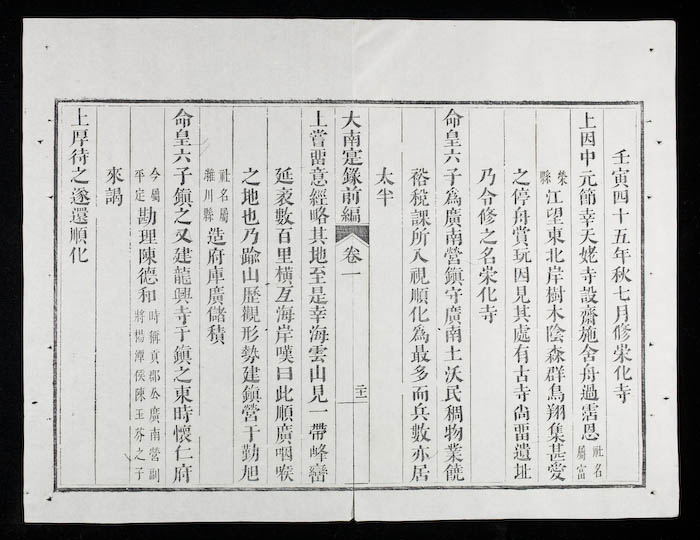 壬寅四十五年秋七月修崇化寺
上因中元節幸天姥寺設齋施舍舟過霑恩社名屬富
榮縣江望東北岸樹木陰森群鳥翔集甚愛
之停舟賞玩因見其處有古寺尙畱遺址
乃令修之名崇化寺
命皇六子爲廣南營鎭守廣南土沃民稠物業饒
裕稅課所入視順化爲最多而兵數亦居
太半
大南寔錄前編 卷一 二十一
上嘗畱意經略其地至是幸海雲山見一帶峰巒
延袤數百里橫亙海岸嘆曰此順廣咽喉
之地也乃踰山歷觀形勢建鎭營于勤旭
社名屬濰川縣造府庫廣儲積
命皇六子鎭之又建龍興寺于鎭之東時懷仁府
今屬平定勘理陳德和時稱貢郡公廣南營副將楊潭侯陳玉芬之子
來謁
上厚待之遂還順化